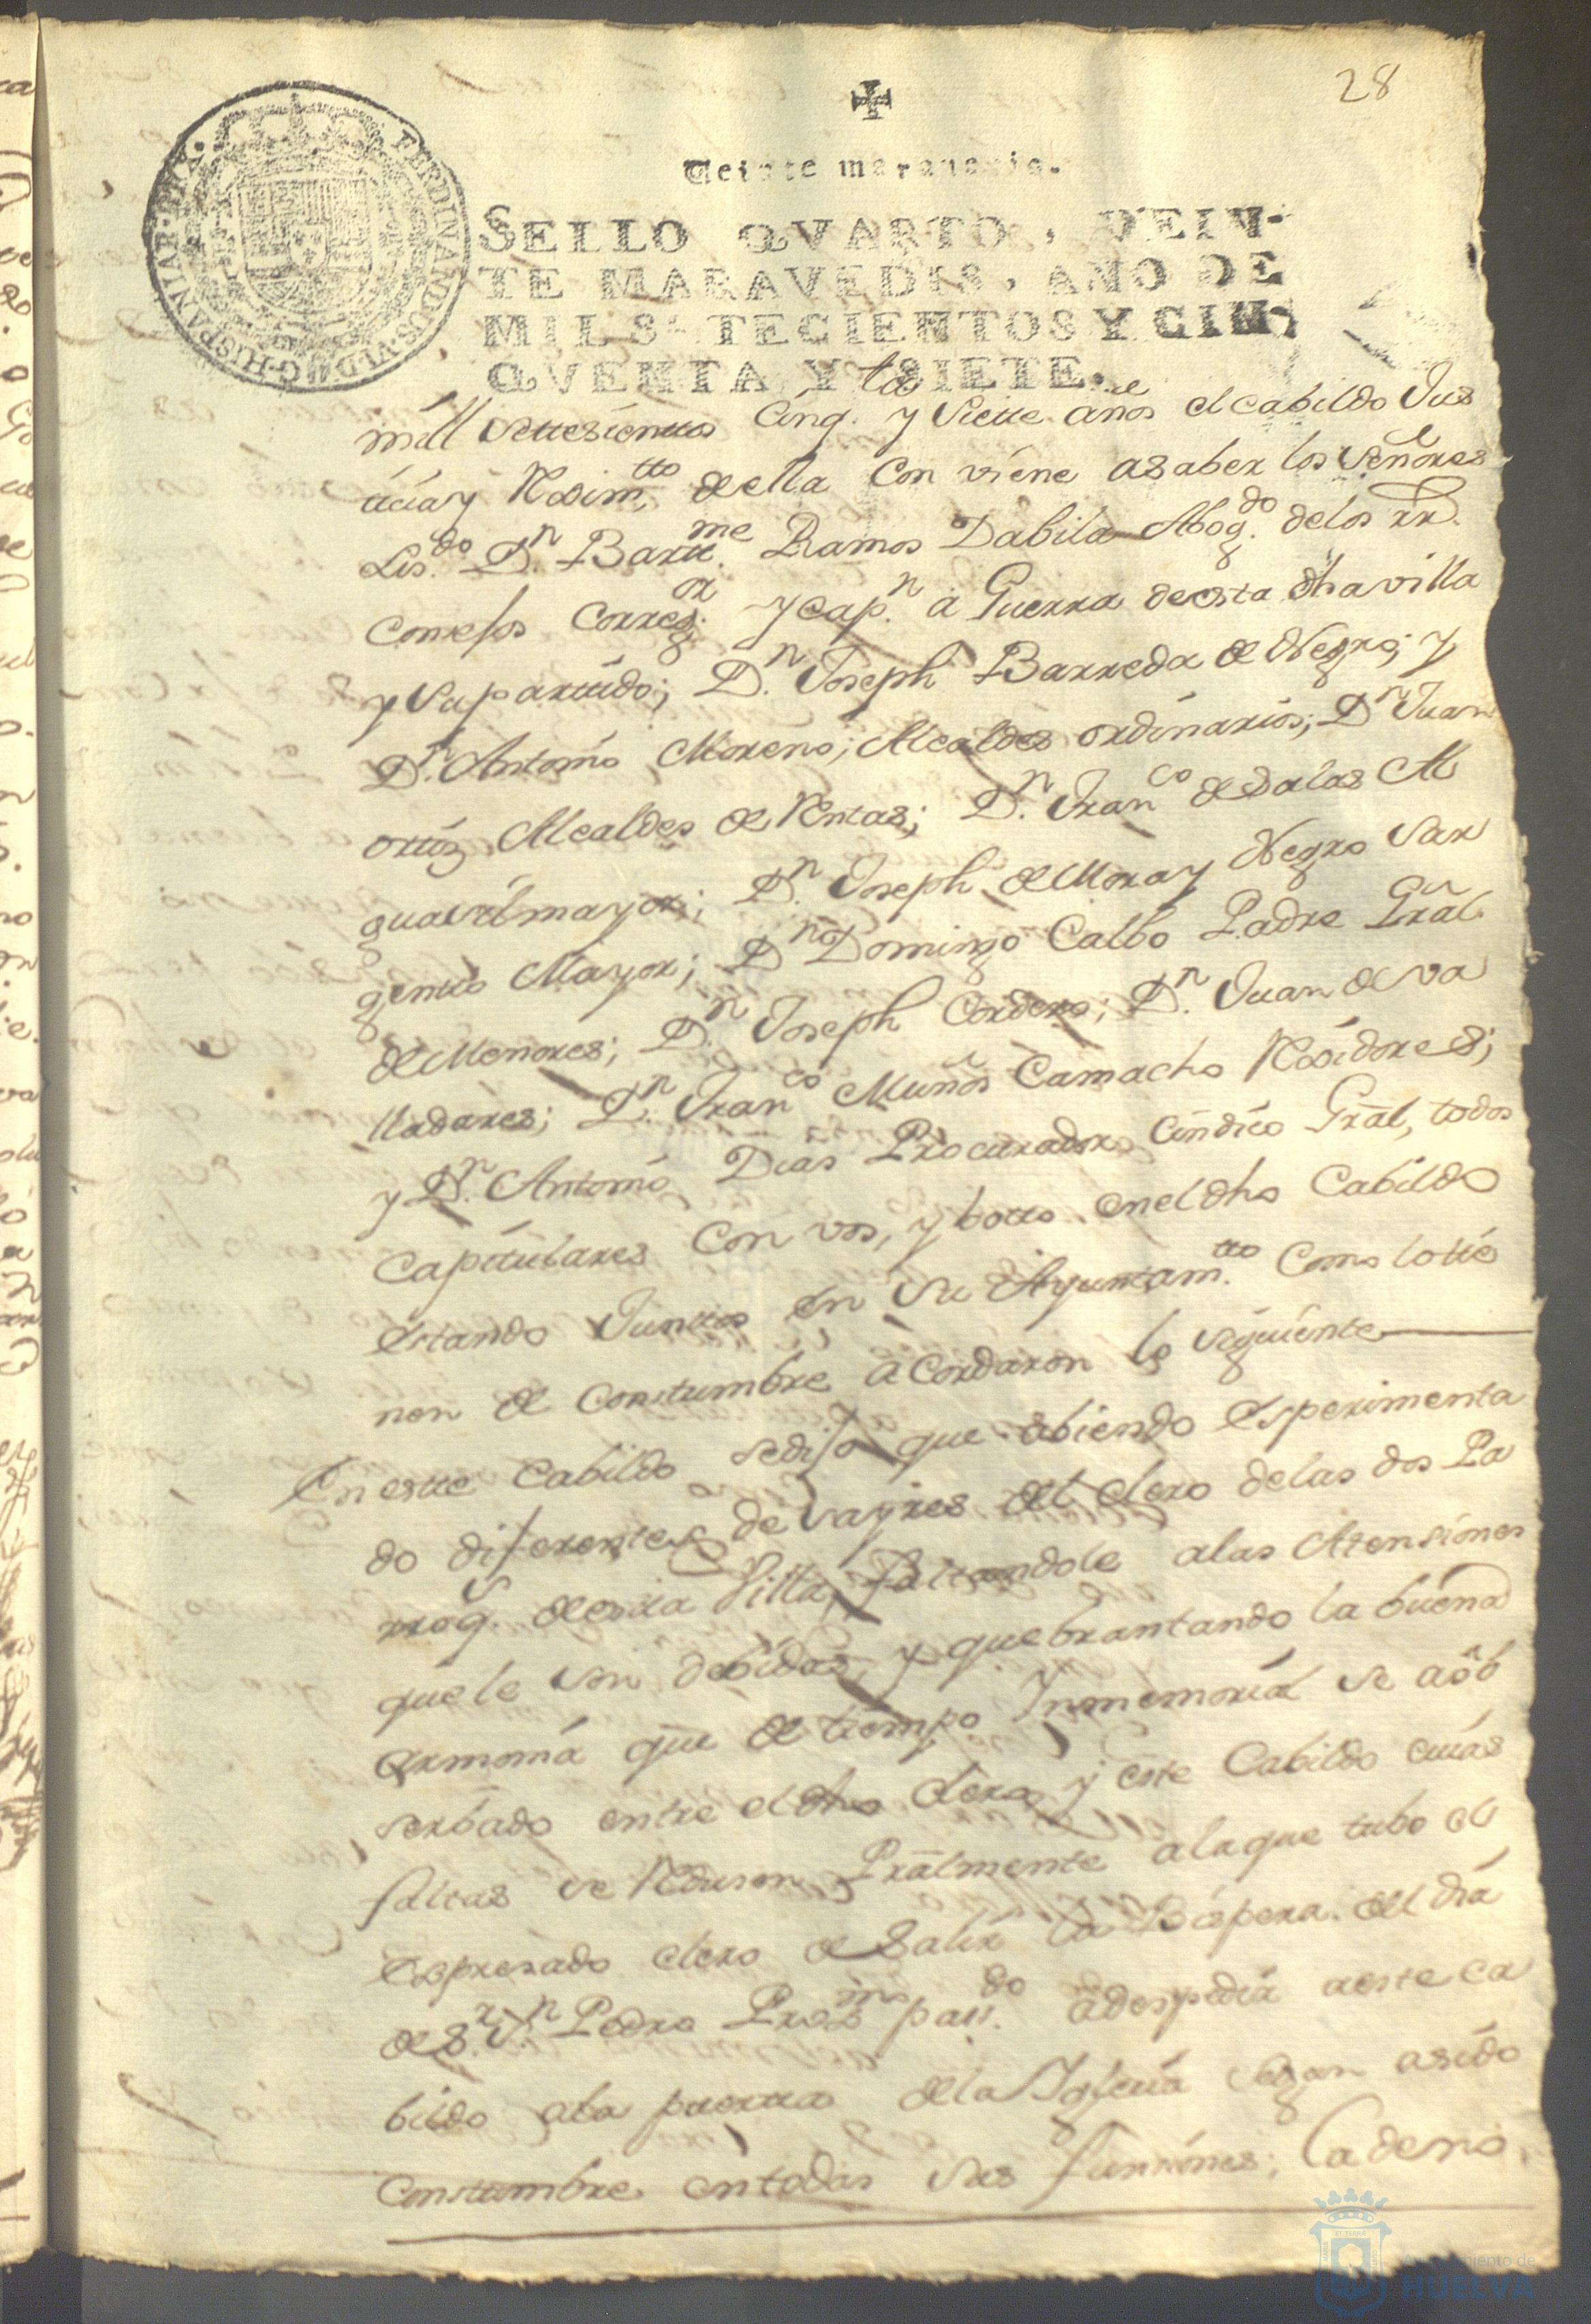 28
Veinte maravedis.
SELLO QVARTO, VEIN-
TE MARAVEDIS, AÑO DE
MIL SETECIENTOS Y CIN-
QVENTA Y SIETE.
FERDINANDUS·VI·D·G·HISPANIAR·REX·
mill settesienttos Cinq.ta y Siette años el cabildo Jus
ticia y Reximtto della Con viene asaber los Señores
Lis.do D.n Bartt.me Ramos Dabila Abog.do de los RR.
Consejos Correg.or y cap.n a Guerra de esta dha villa
y Su parttido; D.n Joseph Barreda de Negro; y
D.n Antonio Moreno; Alcaldes ordinarios; D.n Juan
orttiz Alcaldes de Rentas; D.n Fran.co de Salas Al
guasil mayor; D.n Joseph de Mora y Negro Sar
gentto Mayor; D.n Domingo Calbo Padre Gral
de Menores; D.n Joseph Cordero; D.n Juan de va
lladares; D.n Fran.co Muños Camacho Rexidores;
y D.n Antonio Dias Procurador Cindico Gral, todos
Capitulares Con vos, y botto en el dho Cabildo
estando Junttos en Su Ayuntam.tto Como lo tie
nen de Constumbre acordaron lo siguiente
En estte Cabildo se dijo que abiendo esperimenta
do diferentes desayres del clero de las dos Pa
rroq.s de esta Villa, faltandole a las Atensiones
que le son debidas, y quebrantando la buena
armonia que de tiempo Inmemorial se a ob
serbado entre el dho clero y este Cabildo cuias
faltas se Redusen Pralmente a la que tubo el
expresado clero de Salir la Bispera del dia
de S.r S.n Pedro Prox.mo pas.do a despedir a este ca
bildo a la puertta de la Iglecia segun a sido
Constumbre en todas sus funsiones; la de no
Ayuntamiento de
HUELVA